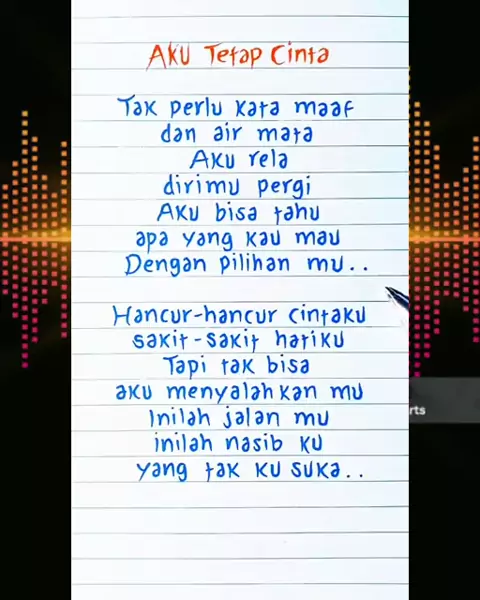 Aku Tetap Cinta
Tak perlu kata maaf
dan air mata
Aku rela
dirimu pergi
Aku bisa tahu
apa yang kau mau
Dengan pilihan mu..
Hancur-hancur cintaku
sakit-sakit hatiku
Tapi tak bisa
aku menyalahkan mu
Inilah jalan mu
inilah nasib ku
yang tak ku suka..
rts